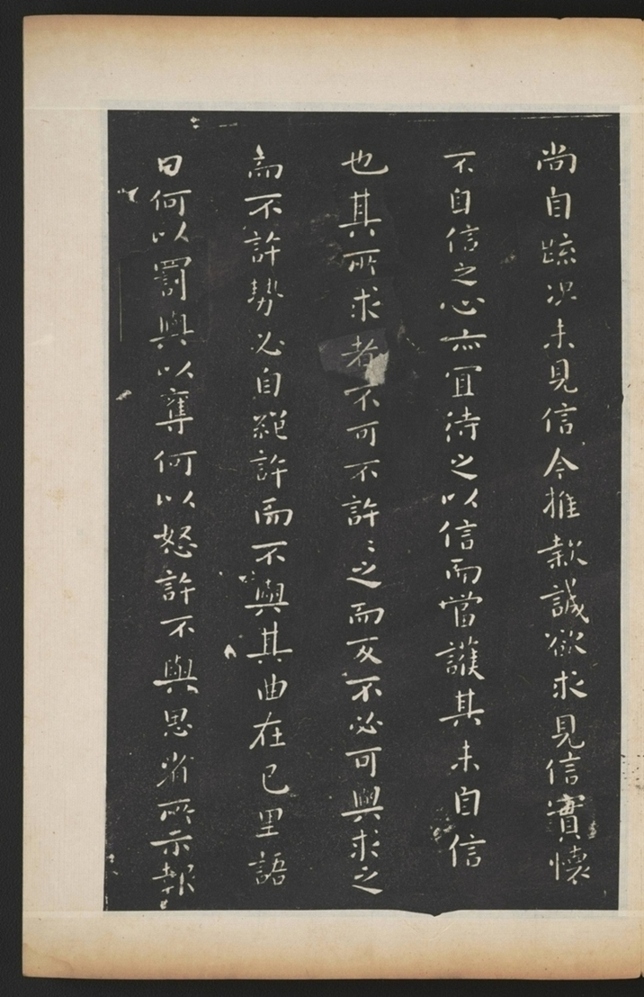 尚自疏況未見信今推款誠欲求見信實懷
不自信之心亦宜待之以信而當護其未自信
也其所求者不可不許許之而反不必可與求之
而不許勢必自絕許而不與其曲在己里語
曰何以罰與以奪何以怒許不與思省所示報